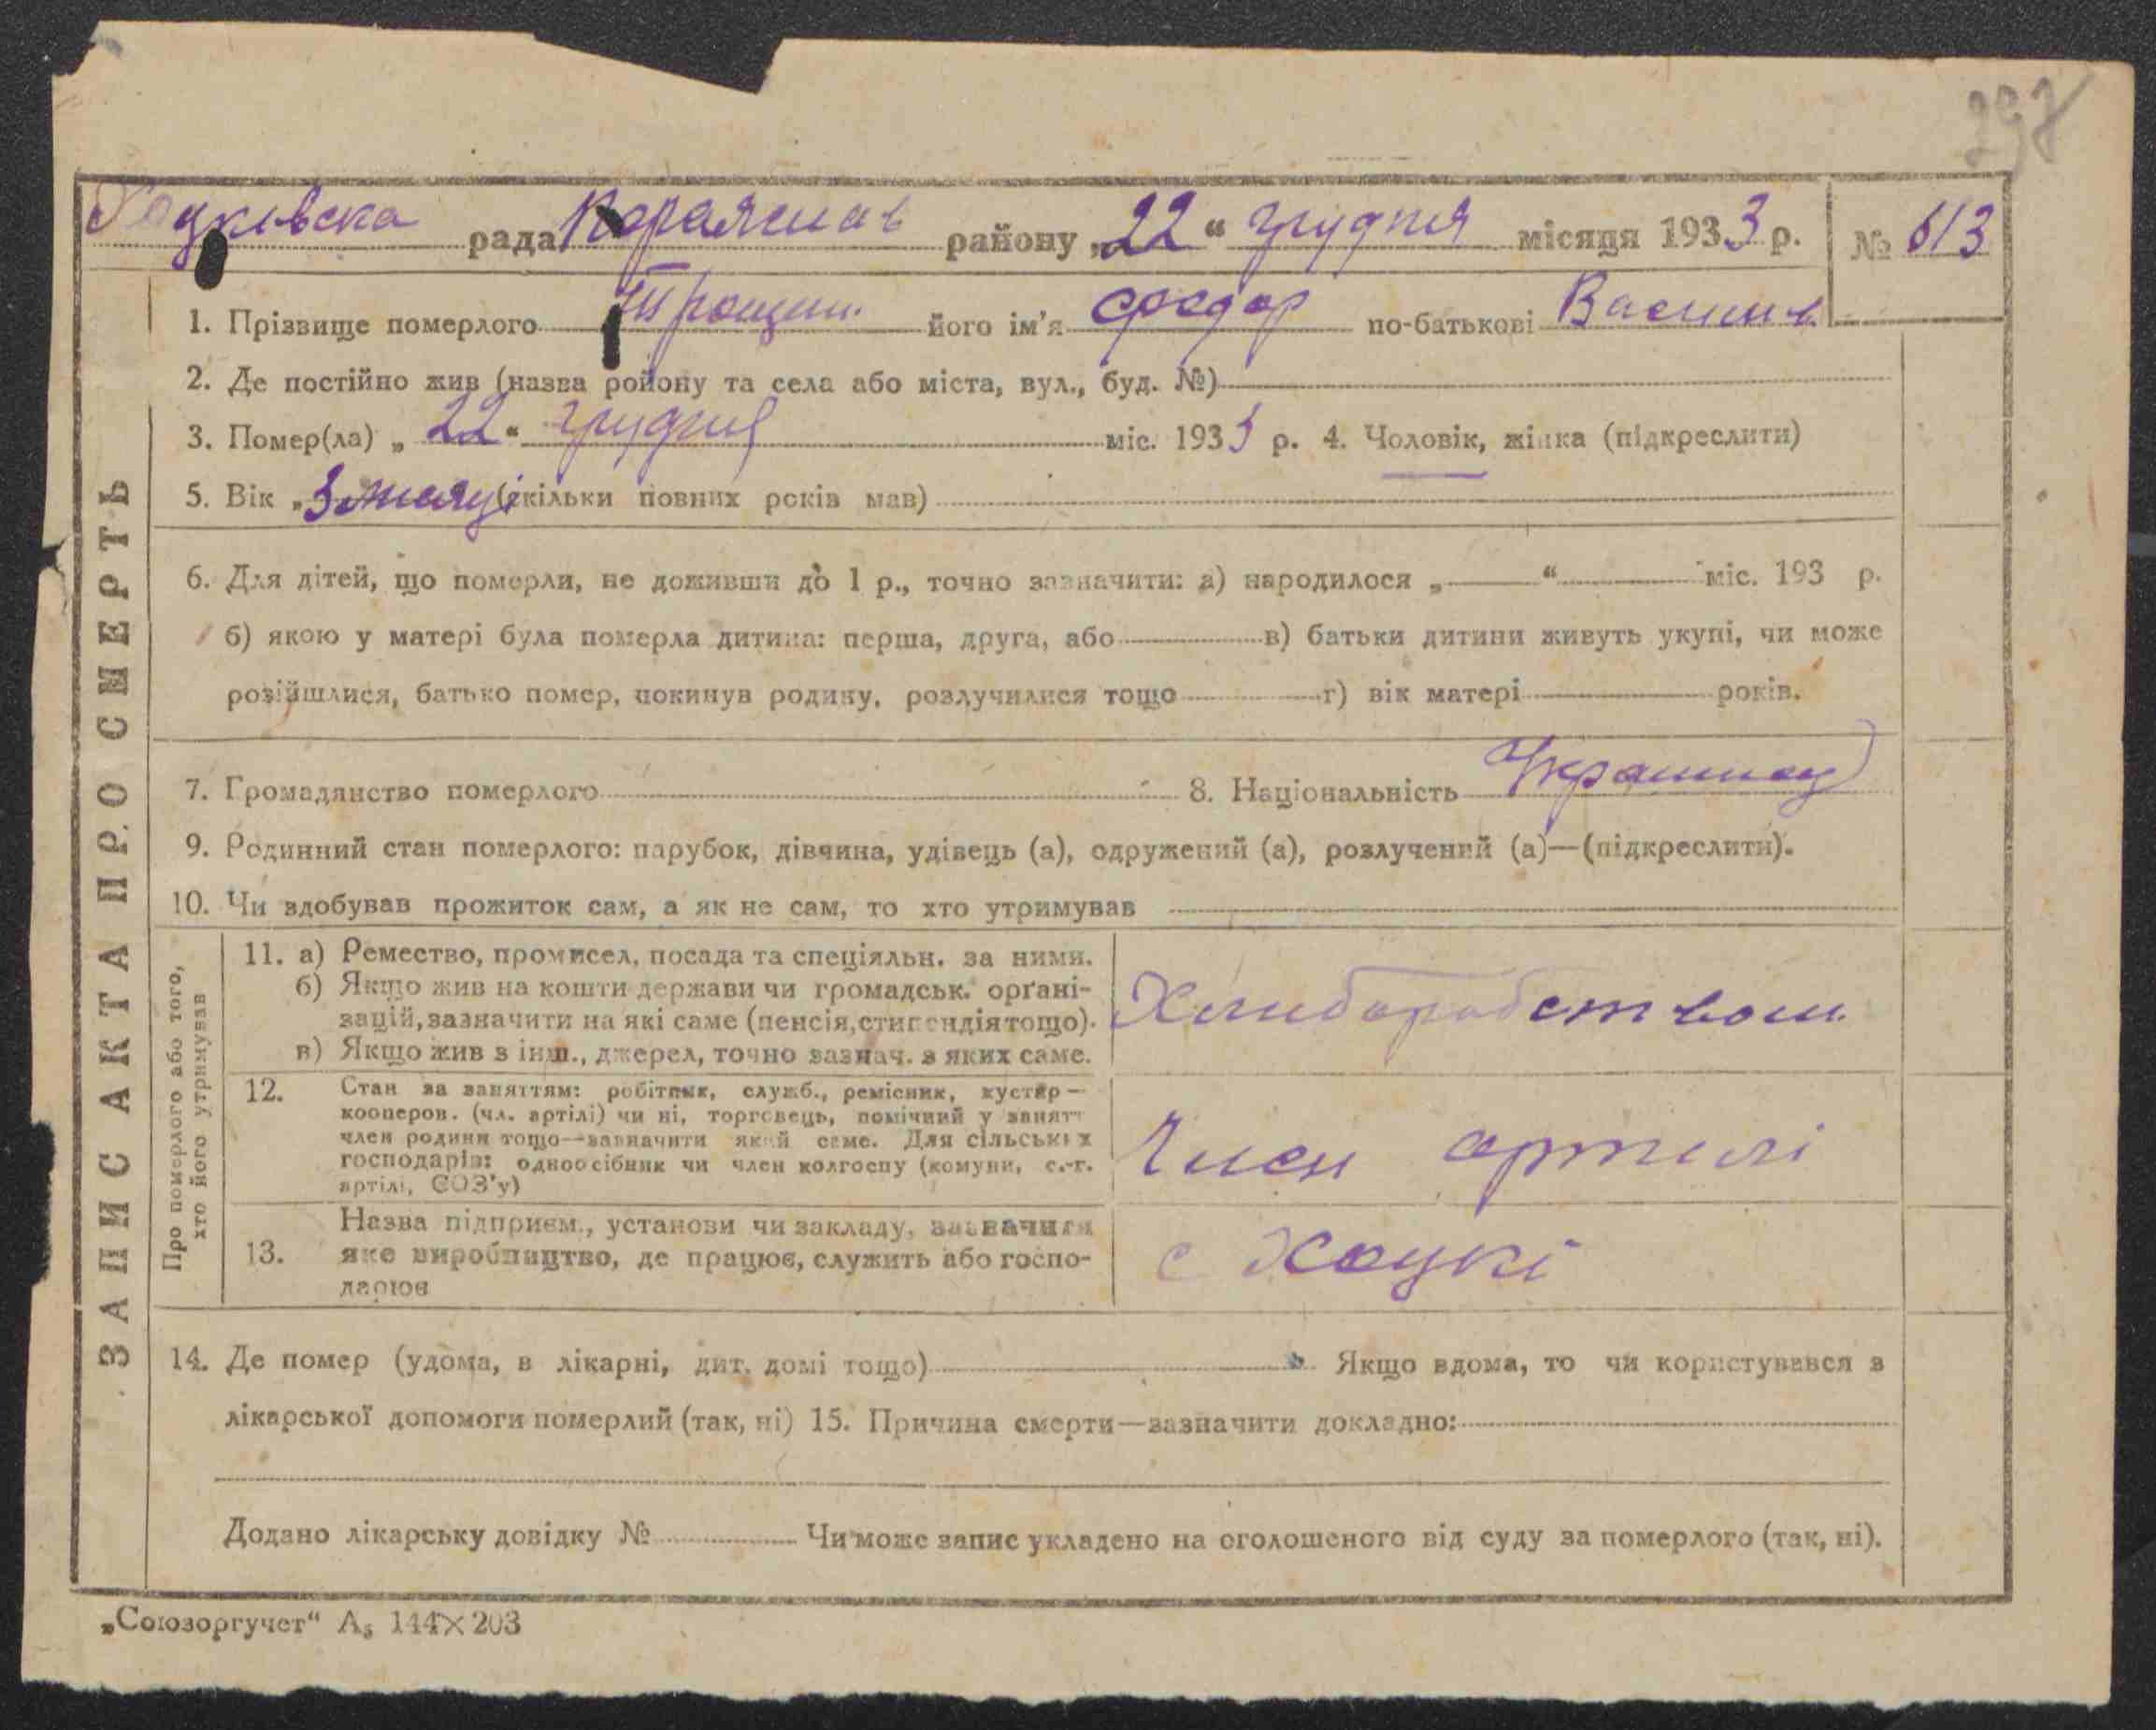 297
Хоцківська рада району „22“ грудня місяця 1933 р. № 613
1. Прізвище померлого його ім'я Федор по-батькові Васильов
2. Де постійно жив (назва ройону та села або міста, вул., буд. №)
3. Помер(ла) „22“ грудня міс. 1933 р. 4. Чоловік, жінка (підкреслити)
5. Вік „3 місяці (скільки повних років мав)
6. Для дітей, що померли, не доживши до 1 р., точно зазначити: а) народилося „ “ міс. 193 р.
б) якою у матері була померла дитина: перша, друга, або в) батьки дитини живуть укупі, чи може
розійшлися, батько помер, покинув родину, розлучилися тощо г) вік матері років.
7. Громадянство померлого 8. Національність Українец
9. Родинний стан померлого: парубок, дівчина, удівець (а), одружений (а), розлучений (а)—(підкреслити).
10. Чи здобував прожиток сам, а як не сам, то хто утримував
ЗАПИС АКТА ПРО СМЕРТЬ
Про померлого або того,
хто його утримував
11. а) Ремество, промисел, посада та спеціяльн. за ними.
б) Якщо жив на кошти держави чи громадськ. орґані-
зацій, зазначити на які саме (пенсія, стипендія тощо).
в) Якщо жив з інш., джерел, точно зазнач. з яких саме.
Хлиборобством
12. Стан за заняттям: робітник, служб., ремісник, кустар—
кооперов. (чл. артілі) чи ні, торговець, помічний у занятт
член родини тощо—зазначити який саме. Для сільських
господарів: одноосібник чи член колгоспу (комуни, с.-г.
артілі, СОЗ'у)
Член артилі
13. Назва підприєм., установи чи закладу, зазначити
яке виробництво, де працює, служить або госпо-
дарює
с Хоцкі
14. Де помер (удома, в лікарні, дит. домі тощо) Якщо вдома, то чи користувався з
лікарської допомоги померлий (так, ні) 15. Причина смерти—зазначити докладно:
Додано лікарську довідку № Чи може запис укладено на оголошеного від суду за померлого (так, ні).
„Союзоргучет“ А₅ 144×203